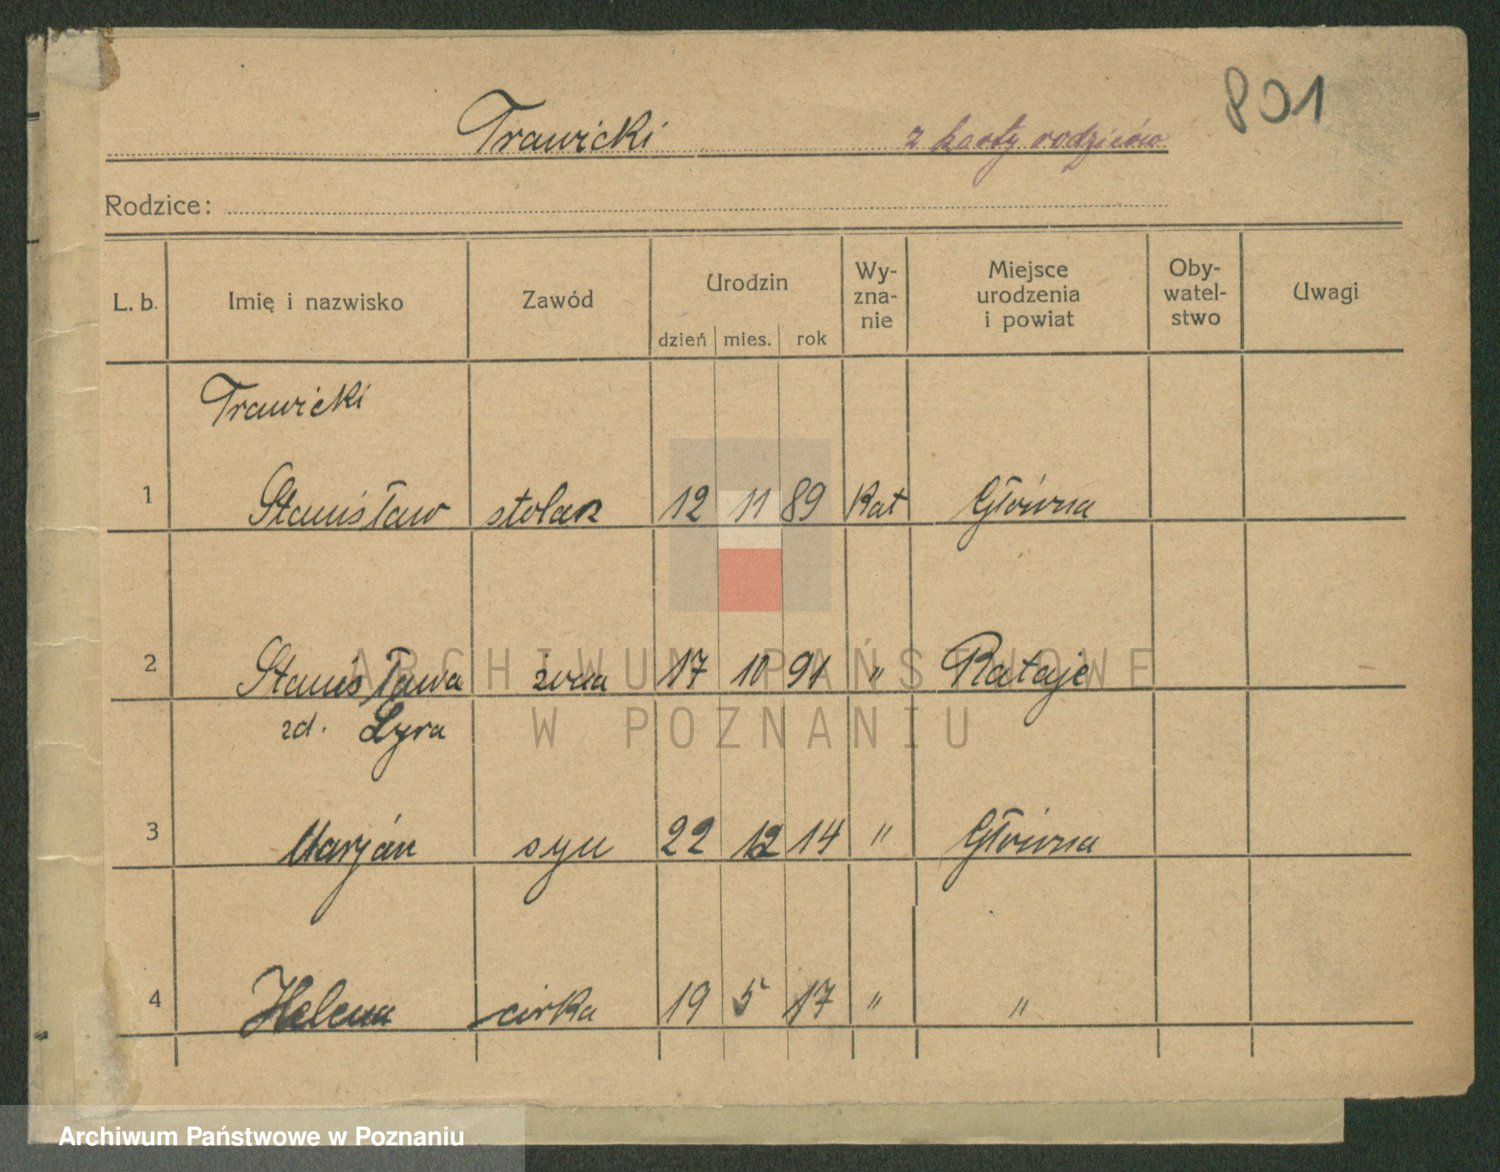 801
Trawicki z karty rodziców
Rodzice:
L. b. Imię i nazwisko Zawód Urodzin dzień mies. rok Wy-zna-nie Miejsce urodzenia i powiat Oby-watel-stwo Uwagi
Trawicki
1 Stanisław stolarz 12 11 89 Kat Główna
2 Stanisława żona 17 10 91 " Rataje
zd. Lyra
3 Marjan syn 22 12 14 " Główna
4 Helena córka 19 5 17 " "
ARCHIWUM PAŃSTWOWE
W POZNANIU
Archiwum Państwowe w Poznaniu